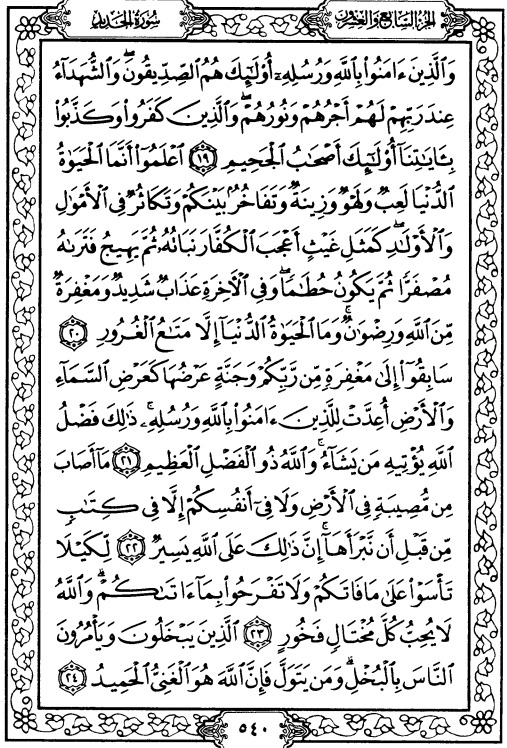 الجزء السابع والعشرون
سورة الحديد
وَالَّذِينَ ءَامَنُوا۟ بِاللَّهِ وَرُسُلِهِۦٓ أُو۟لَٰٓئِكَ هُمُ الصِّدِّيقُونَ ۖ وَالشُّهَدَآءُ
عِندَ رَبِّهِمْ لَهُمْ أَجْرُهُمْ وَنُورُهُمْ ۖ وَالَّذِينَ كَفَرُوا۟ وَكَذَّبُوا۟
بِـَٔايَٰتِنَآ أُو۟لَٰٓئِكَ أَصْحَٰبُ الْجَحِيمِ ١٩ اعْلَمُوٓا۟ أَنَّمَا الْحَيَوٰةُ
الدُّنْيَا لَعِبٌ وَلَهْوٌ وَزِينَةٌ وَتَفَاخُرٌۢ بَيْنَكُمْ وَتَكَاثُرٌ فِى الْأَمْوَٰلِ
وَالْأَوْلَٰدِ ۖ كَمَثَلِ غَيْثٍ أَعْجَبَ الْكُفَّارَ نَبَاتُهُۥ ثُمَّ يَهِيجُ فَتَرَىٰهُ
مُصْفَرًّا ثُمَّ يَكُونُ حُطَٰمًا ۖ وَفِى الْأَخِرَةِ عَذَابٌ شَدِيدٌ وَمَغْفِرَةٌ
مِّنَ اللَّهِ وَرِضْوَٰنٌ ۚ وَمَا الْحَيَوٰةُ الدُّنْيَآ إِلَّا مَتَٰعُ الْغُرُورِ ٢٠
سَابِقُوٓا۟ إِلَىٰ مَغْفِرَةٍ مِّن رَّبِّكُمْ وَجَنَّةٍ عَرْضُهَا كَعَرْضِ السَّمَآءِ
وَالْأَرْضِ أُعِدَّتْ لِلَّذِينَ ءَامَنُوا۟ بِاللَّهِ وَرُسُلِهِۦ ۚ ذَٰلِكَ فَضْلُ
اللَّهِ يُؤْتِيهِ مَن يَشَآءُ ۚ وَاللَّهُ ذُو الْفَضْلِ الْعَظِيمِ ٢١ مَآ أَصَابَ
مِن مُّصِيبَةٍ فِى الْأَرْضِ وَلَا فِىٓ أَنفُسِكُمْ إِلَّا فِى كِتَٰبٍ
مِّن قَبْلِ أَن نَّبْرَأَهَآ ۚ إِنَّ ذَٰلِكَ عَلَى اللَّهِ يَسِيرٌ ٢٢ لِّكَيْلَا
تَأْسَوْا۟ عَلَىٰ مَا فَاتَكُمْ وَلَا تَفْرَحُوا۟ بِمَآ ءَاتَىٰكُمْ ۗ وَاللَّهُ
لَا يُحِبُّ كُلَّ مُخْتَالٍ فَخُورٍ ٢٣ الَّذِينَ يَبْخَلُونَ وَيَأْمُرُونَ
النَّاسَ بِالْبُخْلِ ۗ وَمَن يَتَوَلَّ فَإِنَّ اللَّهَ هُوَ الْغَنِىُّ الْحَمِيدُ ٢٤
٥٤٠